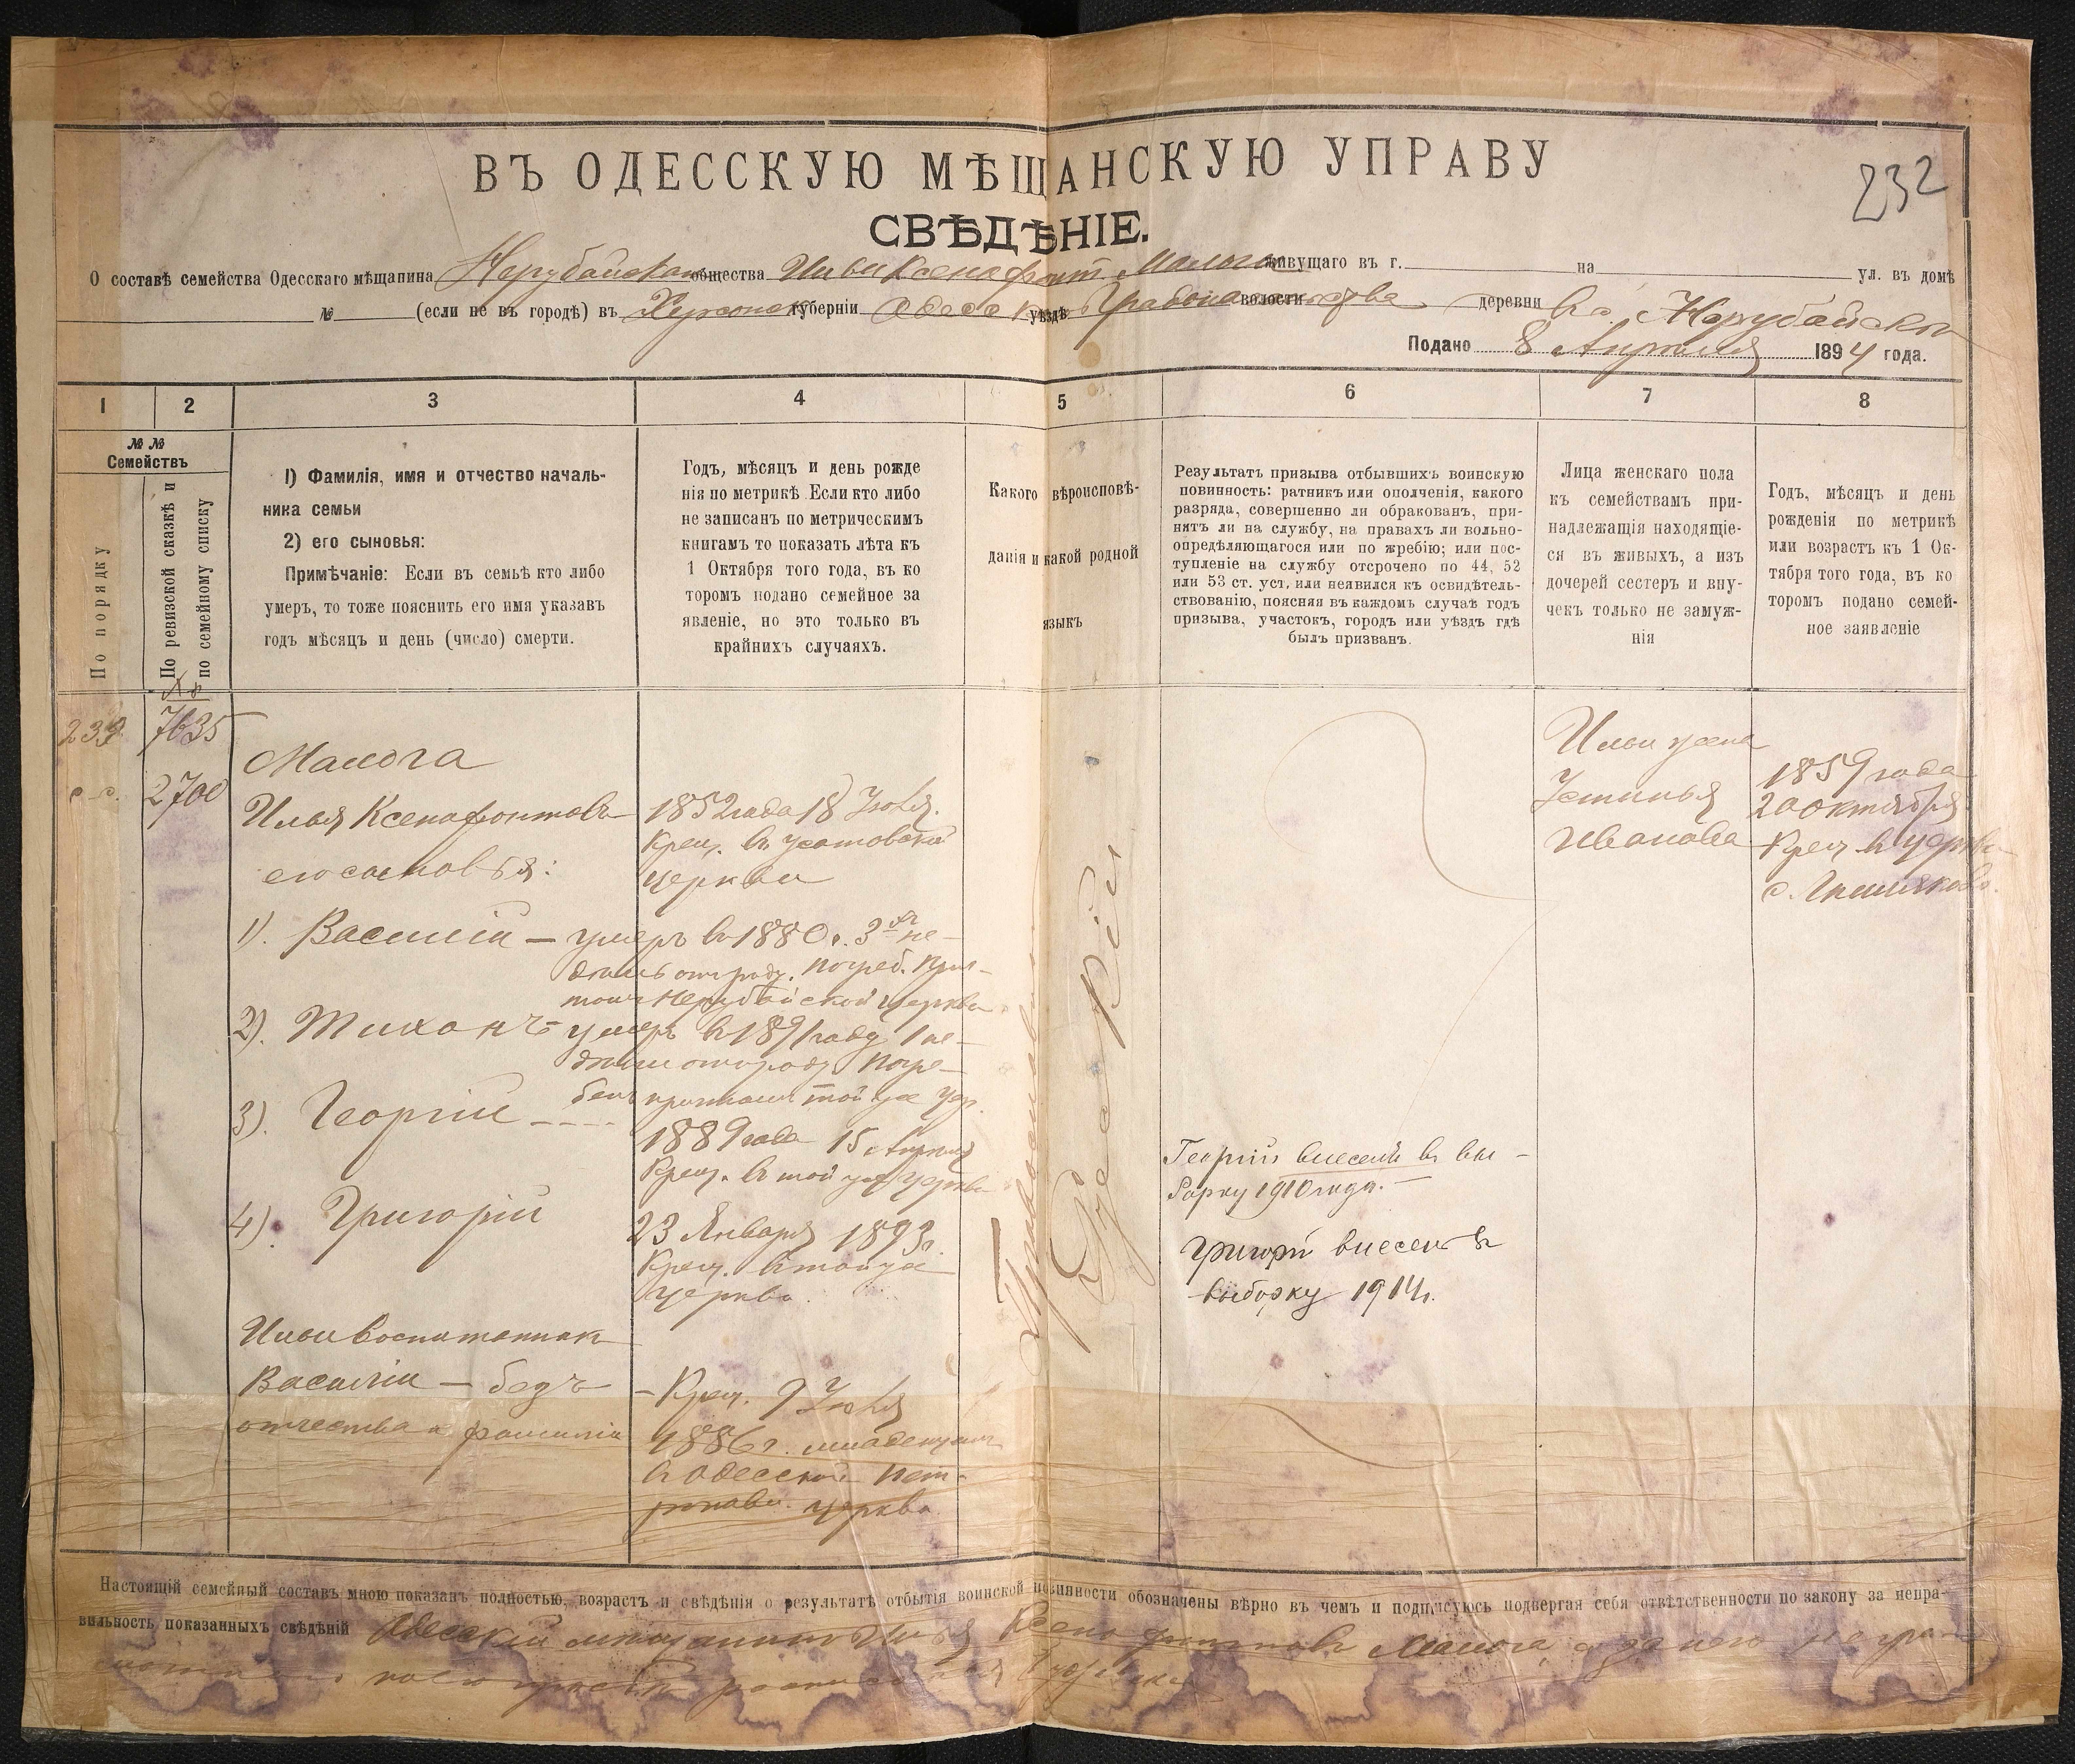 232
ВЪ ОДЕССКУЮ МѢЩАНСКУЮ УПРАВУ
СВѢДѢНІЕ.
О составѣ семейства Одесскаго мѣщанина Нерубайскаго общества Ильи Ксенофонт. Малога живущаго въ г. на ул. въ домѣ
№ (если не въ городѣ) въ Херсонск губерніи Одесск уѣздѣ Градоначальства волости деревни Нерубайско
Подано 8 Апреля 1894 года.
1 2 3 4 5 6 7 8
№ № Семействъ
По порядку
По ревизской сказкѣ и по семейному списку
I) Фамилія, имя и отчество началь-
ника семьи
2) его сыновья:
Примѣчаніе: Если въ семьѣ кто либо
умеръ, то тоже пояснить его имя указавъ
годъ мѣсяцъ и день (число) смерти.
Годъ, мѣсяцъ и день рожде
нія по метрикѣ Если кто либо
не записанъ по метрическимъ
книгамъ то показать лѣта къ
1 Октября того года, въ ко
торомъ подано семейное за
явленіе, но это только въ
крайнихъ случаяхъ.
Какого вѣроисповѣ-
данія и какой родной
языкъ
Результатъ призыва отбывшихъ воинскую
повинность: ратникъ или ополченія, какого
разряда, совершенно ли обракованъ, при-
нятъ ли на службу, на правахъ ли вольно-
опредѣляющагося или по жребію; или пос-
тупленіе на службу отсрочено по 44, 52
или 53 ст. уст. или неявился къ освидѣтель-
ствованію, поясняя въ каждомъ случаѣ годъ
призыва, участокъ, городъ или уѣздъ гдѣ
былъ призванъ.
Лица женскаго пола
къ семействамъ при-
надлежащія находящіе-
ся въ живыхъ, а изъ
дочерей сестеръ и вну-
чекъ только не замуж-
нія
Годъ, мѣсяцъ и день
рожденія по метрикѣ
или возрастъ къ 1 Ок-
тября того года, въ ко
торомъ подано семей-
ное заявленіе
№
7635
2700
Малога
Илья Ксенофонтовъ
его сыновья:
1). Василій —
2). Тихонъ —
3). Георгій
4). Григорій
Ильи воспитанник
Василій — безъ
отчества и фамиліи
1852 года 18 Іюля.
Крещ. въ Усатовской
церкви
умеръ въ 1880 г. 3хъ не-
дель отъ роду. Погреб. при-
томъ Нерубайской церкви
умеръ въ 1891 году 1 не-
дели отъ роду Погре-
бенъ той же цер.
1889 года 15 Апреля
Крещ. въ той же церкви
23 Января 1893г.
Крещ. в той же
церкви.
— Крещ. 9 Іюля
1886 г. младенцемъ
в Одесской
церкви.
Православнаго
Георгій внесенъ въ вы-
борку 1910 года. —
Григорій внесенъ въ
выборку 1914г.
Ильи жена
Устинья
Иванова
1859 года
20 октября
Крещ в церкви
с.
Настоящій семейный составъ мною показанъ полностью, возрастъ и свѣдѣнія о результатѣ отбытія воинской повинности обозначены вѣрно въ чемъ и подписуюсь подвергая себя отвѣтственности по закону за непра-
вильность показанныхъ свѣдѣній Одесскій мѣщанинъ Илья Ксенофонтовъ Малога, а за него неграмотнаго
по его просьбѣ росписался